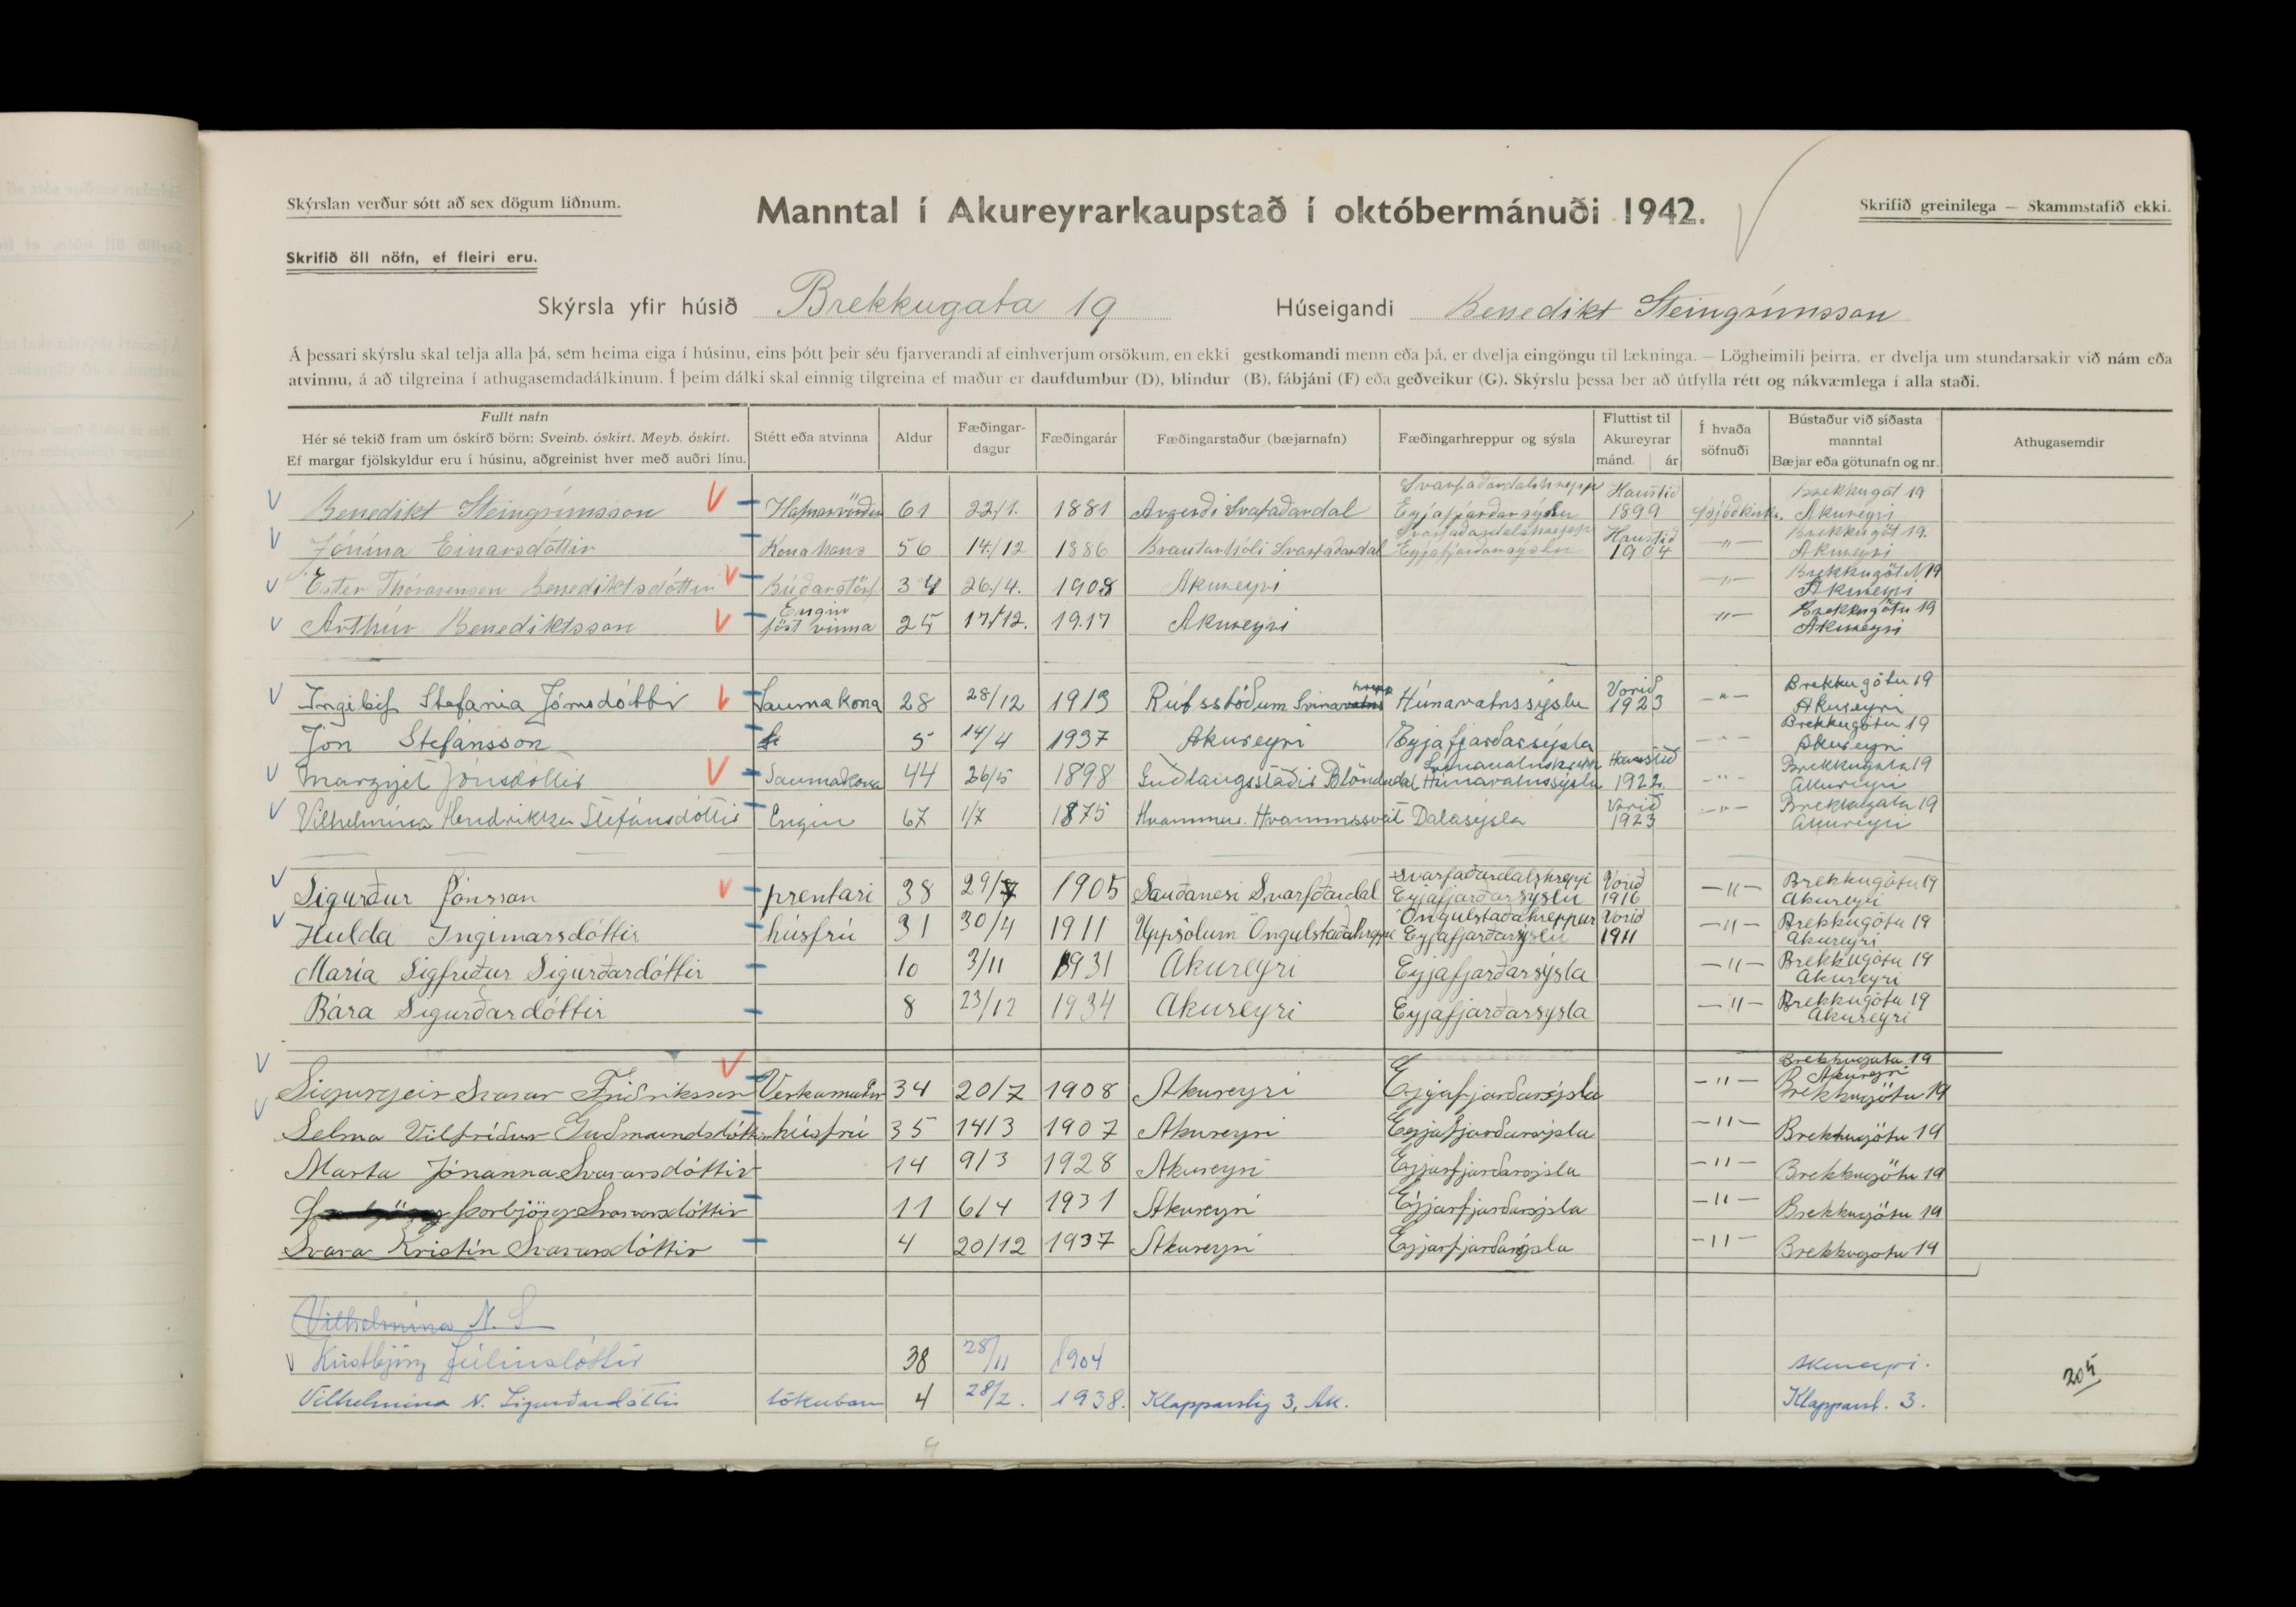 Skýrslan verður sótt að sex dögum liðnum.
Manntal í Akureyrarkaupstað í októbermánuði 1942.
Skrifið greinilega — Skammstafið ekki.
Skrifið öll nöfn, ef fleiri eru.
Skýrsla yfir húsið Brekkugata 19 Húseigandi Benedikt Steingrímsson
Á þessari skýrslu skal telja alla þá, sem heima eiga í húsinu, eins þótt þeir séu fjarverandi af einhverjum orsökum, en ekki gestkomandi menn eða þá, er dvelja eingöngu til lækninga. — Lögheimili þeirra, er dvelja um stundarsakir við nám eða
atvinnu, á að tilgreina í athugasemdadálkinum. Í þeim dálki skal einnig tilgreina ef maður er daufdumbur (D), blindur (B), fábjáni (F) eða geðveikur (G). Skýrslu þessa ber að útfylla rétt og nákvæmlega í alla staði.
Fullt nafn
Hér sé tekið fram um óskírð börn: Sveinb. óskírt. Meyb. óskírt.
Ef margar fjölskyldur eru í húsinu, aðgreinist hver með auðri línu.
Stétt eða atvinna
Aldur
Fæðingar-
dagur
Fæðingarár
Fæðingarstaður (bæjarnafn)
Fæðingarhreppur og sýsla
Fluttist til
Akureyrar
mánd. ár
Í hvaða
söfnuði
Bústaður við síðasta
manntal
Bæjar eða götunafn og nr.
Athugasemdir
Svarfaðardalshrepp Haustið Brekkugat 19
Benedikt Steingrímsson Hafnarvörður 61 22/1. 1881 Svafaðardal Eyjafjarðarsýslu 1899 Þjóðkirkj. Akureyri
Svarfaðardalshrepp Haustið Brekkugöt 19.
Jónína Einarsdóttir Kona hans 56 14/12 1886 Brautarhóli Svarfaðardal Eyjafjarðarsýslu 1904 —"— Akureyri
Brekkugöt N 19
Ester Thórarensen Benediktsdóttir Búðarstörf 34 26/4. 1908 Akureyri —"— Akureyri
Engin Brekkugötu 19
Arthúr Benediktsson föst vinna 25 17/12. 1917 Akureyri —"— Akureyri
hrepp Vorið Brekkugötu 19
Ingibjf Stefanía Jónsdóttir Saumakona 28 28/12 1913 Rútsstöðum Svinavatns Húnavatnssýslu 1923 —"— Akureyri
Brekkugötu 19
Jón Stefánsson 5 14/4 1937 Akureyri Eyjafjarðarsýsla —"— Akureyri
Svínavatnshrepp Haustið Brekkugata 19
Margrjet Jónsdóttir Saumakona 44 26/5 1898 Guðlaugsstaðir Blöndudal Húnavatnssýsla 1922 —"— Akureyri
Vorið Brekkugata 19
Vilhelmína Hendrikka Stefánsdóttir Engin 67 1/7 1875 Hvammur. Hvammssveit Dalasýsla 1923 —"— Akureyri
Svarfaðardalshreppi Vorið Brekkugötu 19
Sigurður Jónsson prentari 38 29/7 1905 Sauðanesi Svarfðardal Eyjafjarðarsýslu 1916 —"— Akureyri
Öngulstaðahreppur Vorið Brekkugötu 19
Hulda Ingimarsdóttir húsfrú 31 30/4 1911 Uppsölum Öngulstaðahreppi Eyjafjarðarsýslu 1911 —"— Akureyri
Brekkugötu 19
María Sigfríður Sigurðardóttir 10 3/11 1931 Akureyri Eyjafjarðarsýsla —"— Akureyri
Brekkugötu 19
Bára Sigurðardóttir 8 23/12 1934 Akureyri Eyjafjarðarsýsla —"— Akureyri
Brekkugata 19
Akureyri
Sigurgeir Svavar Friðriksson Verkamaður 34 20/7 1908 Akureyri Eyjafjarðarsýsla —"— Brekkugötu 19
Selma Vilfríður Guðmundsdóttir húsfrú 35 14/3 1907 Akureyri Eyjafjarðarsýsla —"— Brekkugötu 19
Marta Jóhanna Svavarsdóttir 14 9/3 1928 Akureyri Eyjarfjarðarsýsla —"— Brekkugötu 19
Þorbjörg Svavarsdóttir 11 6/4 1931 Akureyri Eyjarfjarðarsýsla —"— Brekkugötu 19
Svava Kristín Svavarsdóttir 4 20/12 1937 Akureyri Eyjarfjarðarsýsla —"— Brekkugötu 19
Vilhelmína N. S
Kristbjörg Júlíusdóttir 38 28/11 1904 Akureyri.
Vilhelmína N. Sigurðardóttir tökubarn 4 28/2. 1938. Klapparstíg 3, Ak. Klapparst. 3.